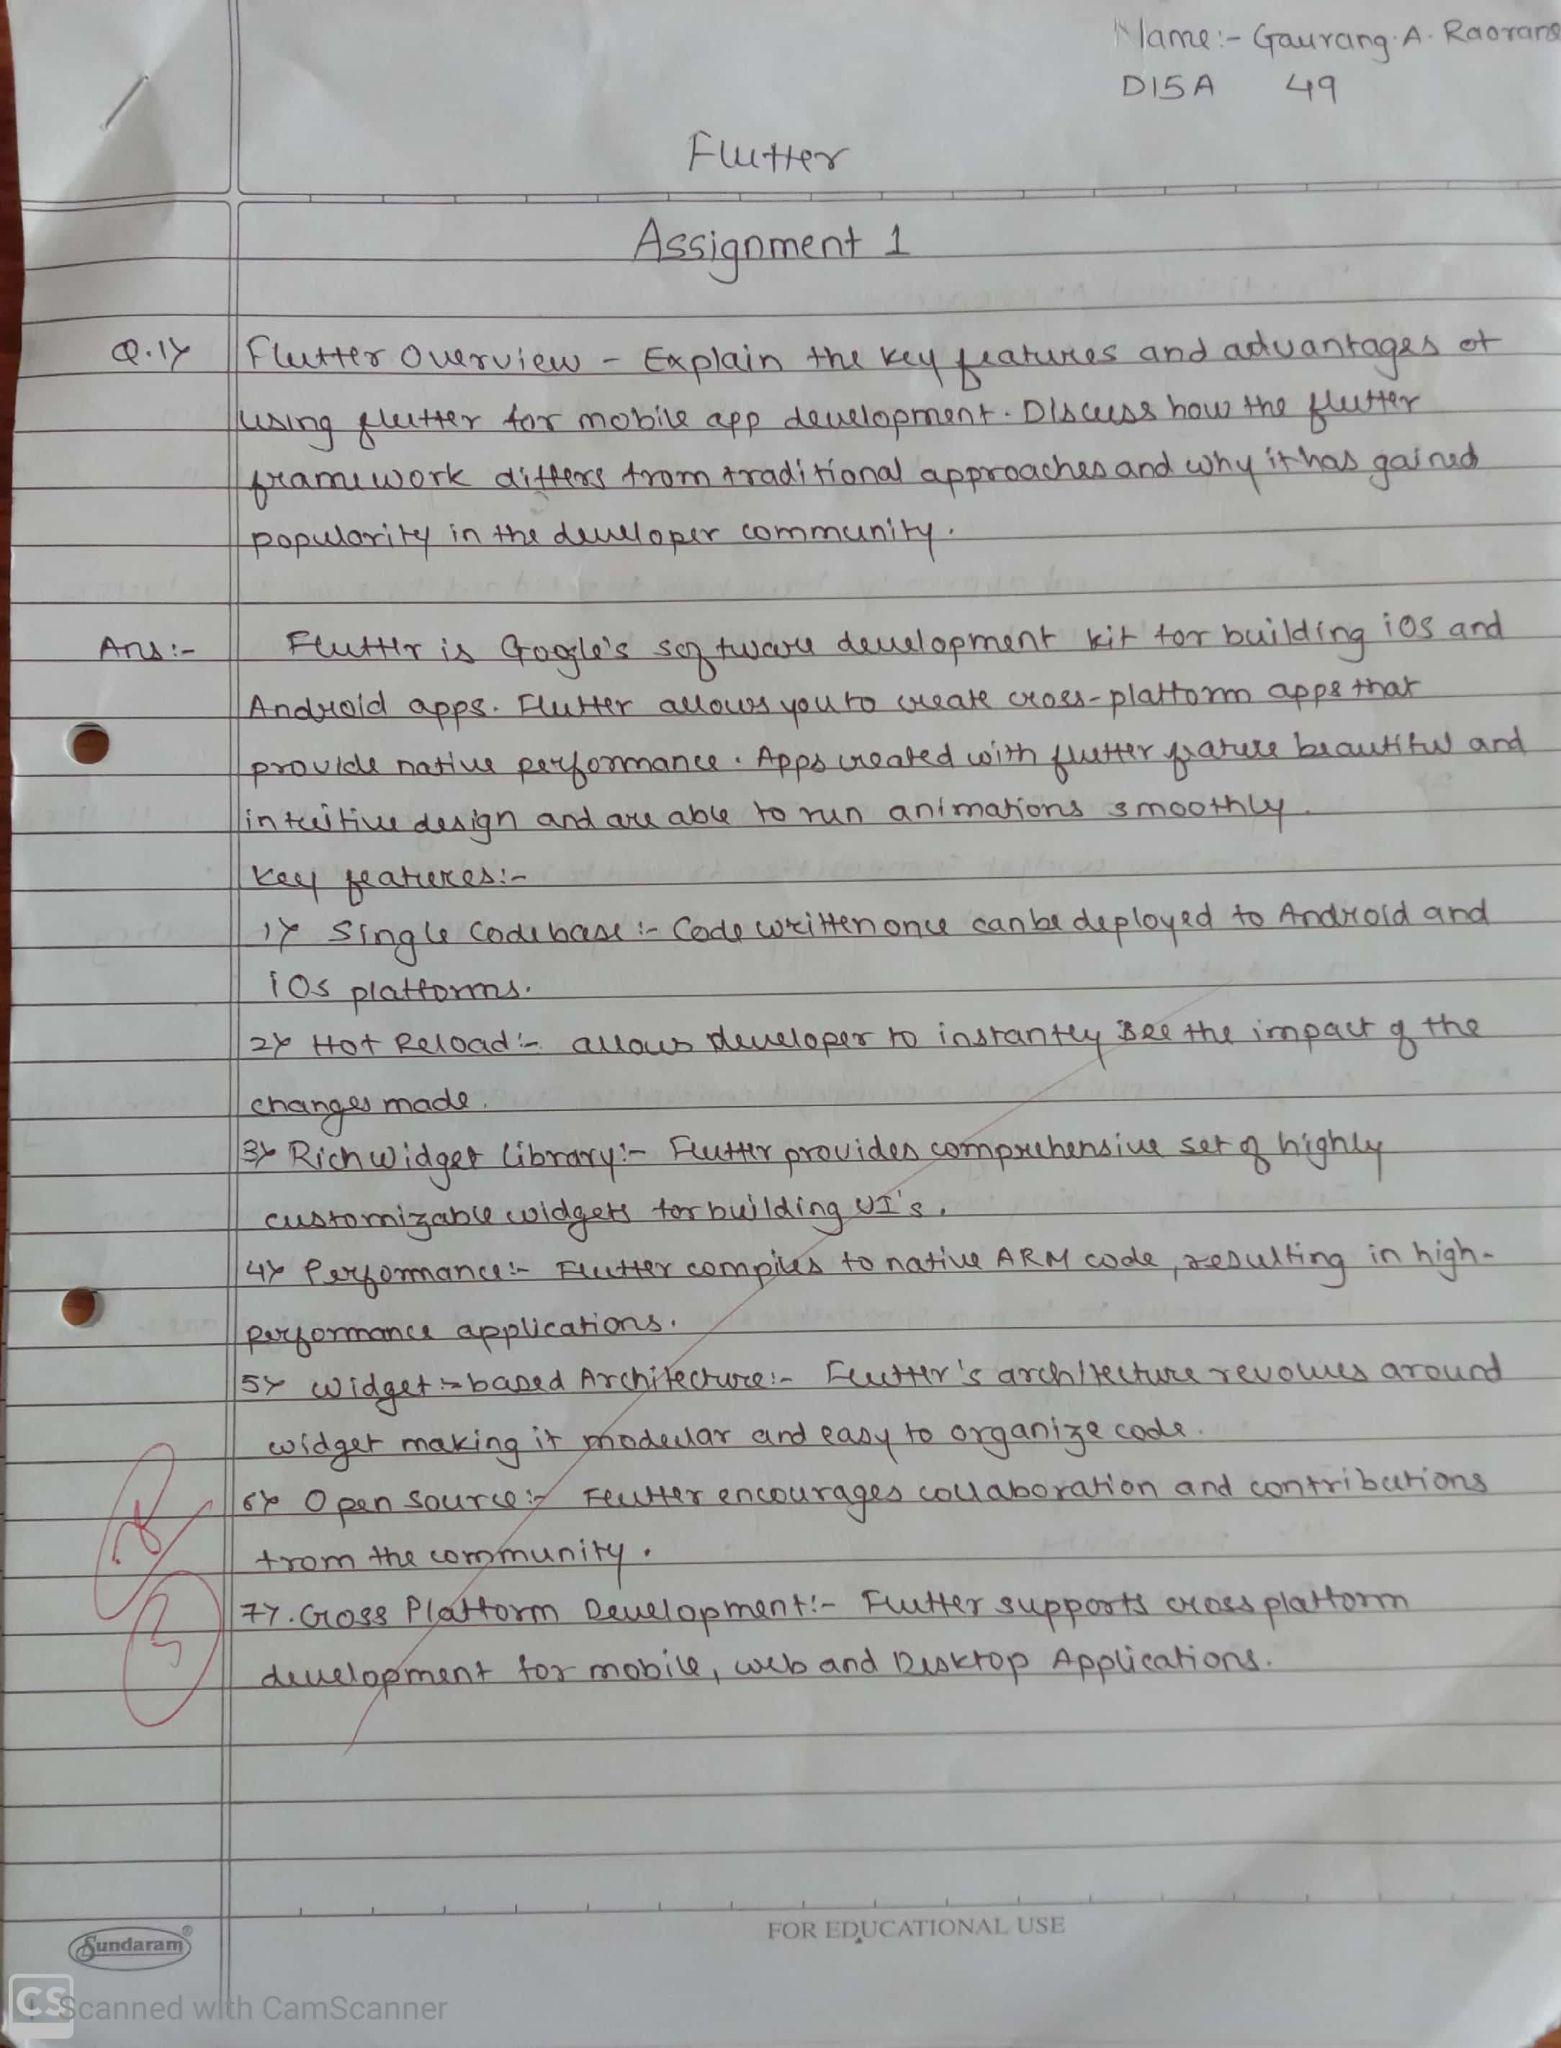 Name:- Gaurang. A. Raorane
D15A 49
Flutter
Assignment 1
Q.1) Flutter Overview - Explain the key features and advantages of
using flutter for mobile app development. Discuss how the flutter
framework differs from traditional approaches and why it has gained
popularity in the developer community.
Ans:- Flutter is Google's software development kit for building ios and
Android apps. Flutter allows you to create cross-platform apps that
provide native performance. Apps created with flutter feature beautiful and
intuitive design and are able to run animations smoothly.
Key features:-
1) Single Codebase:- Code written once can be deployed to Android and
iOs platforms.
2) Hot Reload:- allows developer to instantly see the impact of the
changes made.
3) Rich widget library:- Flutter provides comprehensive set of highly
customizable widgets for building UI's.
4) Performance:- Flutter compiles to native ARM code, resulting in high-
performance applications.
5) Widget-based Architecture:- Flutter's architecture revolves around
widget making it modular and easy to organize code.
6) Open source:- Flutter encourages collaboration and contributions
from the community.
7). Cross Platform Development:- Flutter supports cross platform
development for mobile, web and Desktop Applications.
3
FOR EDUCATIONAL USE
Sundaram®
CS Scanned with CamScanner